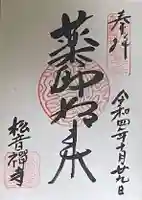 奉拝
令和四年十月廿九日
薬師如来
松音禅寺